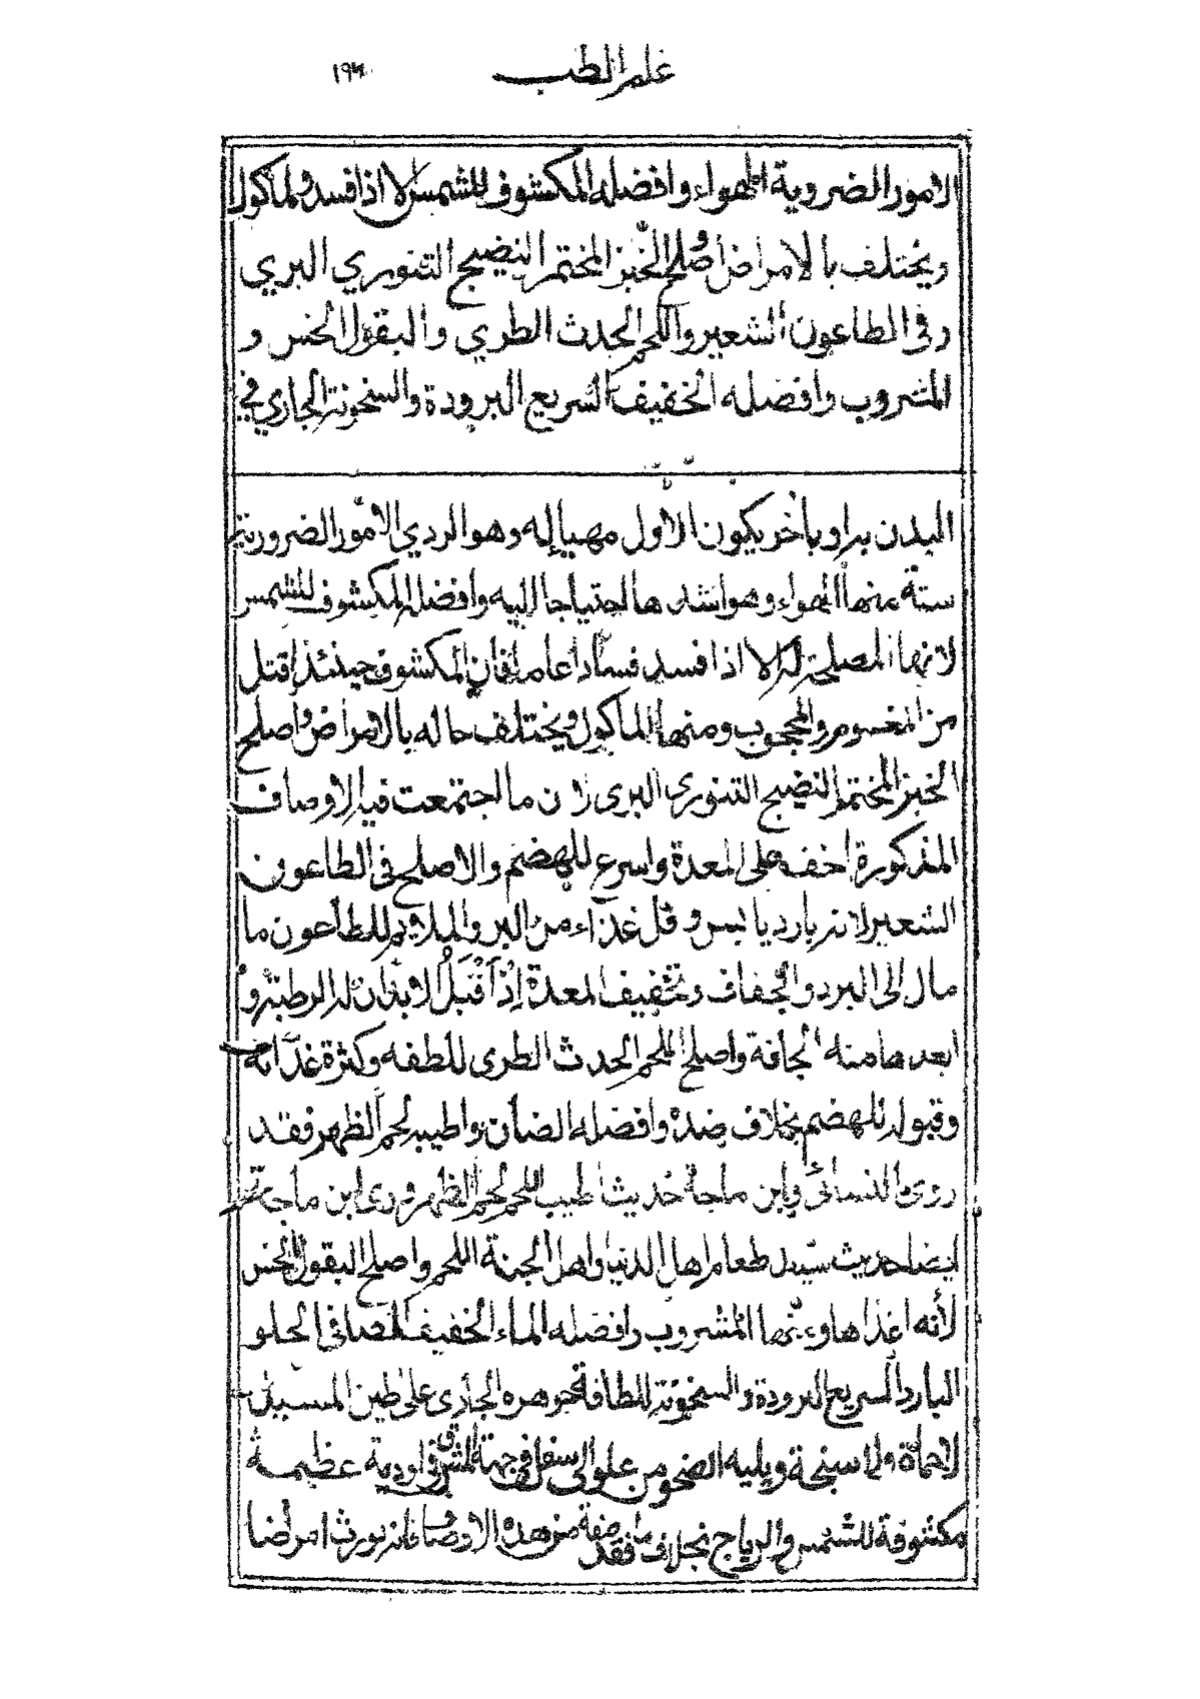 علم الطب ١٩٣
الامور الضروية الهواء وافضله المكشوف للشمس لا اذا فسد والماكول
ويختلف بالامراض واصلح الخبز المختمر النضيج التنوري البري
وفي الطاعون الشعير واللحم الحدث الطري والبقول الخس و
المشروب وافضله الخفيف السريع البرودة والسخونة الجاري في
البدن بداو باخر يكون الاول مهيا له وهو الردي الامور الضرورية
ستة منها الهواء وهو اشدها احتياجا اليه وافضله المكشوف للشمس
لانها المصلحة له لا اذا فسد فسادا عاما فان المكشوف حينئذ اقتل
من المغموم والمحجوب ومنها الماكول ويختلف حاله بالامراض واصلح
الخبز المختمر النضيج التنوري البري لان ما اجتمعت فيه الاوصاف
المذكورة اخف على المعدة واسرع للهضم والاصلح في الطاعون
الشعير لانه بارد يابس وقل غذاء من البر والملايم للطاعون ما
مال الى البرد والجفاف وتخفيف المعدة اذ اقبل الابدان له الرطبة و
ابعدها منه الجافة واصلح اللحم الحدث الطرى للطفه وكثرة غذائه
وقبوله للهضم بخلاف ضده وافضله الضأن واطيبه لحم الظهر فقد
روى النسائى وابن ماجة حديث اطيب اللحم لحم الظهر وروى ابن ماجة
ايضا حديث سيد طعام اهل الدنيا واهل الجنة اللحم واصلح البقول الخس
لأنه اغذاها ومنها المشروب وافضله الماء الخفيف الصافى الحلو
البارد السريع البرودة والسخونة للطافة جوهره الجارى على طين المسيل
لاحماة ولا سبخة ويليه الصخر من علو الى سفل فى جهة المشرق فى اودية عظيمة
مكشوفة للشمس والرياح بخلاف ما فقد صفة من هذه الاوصاف فانه يورث امراضا